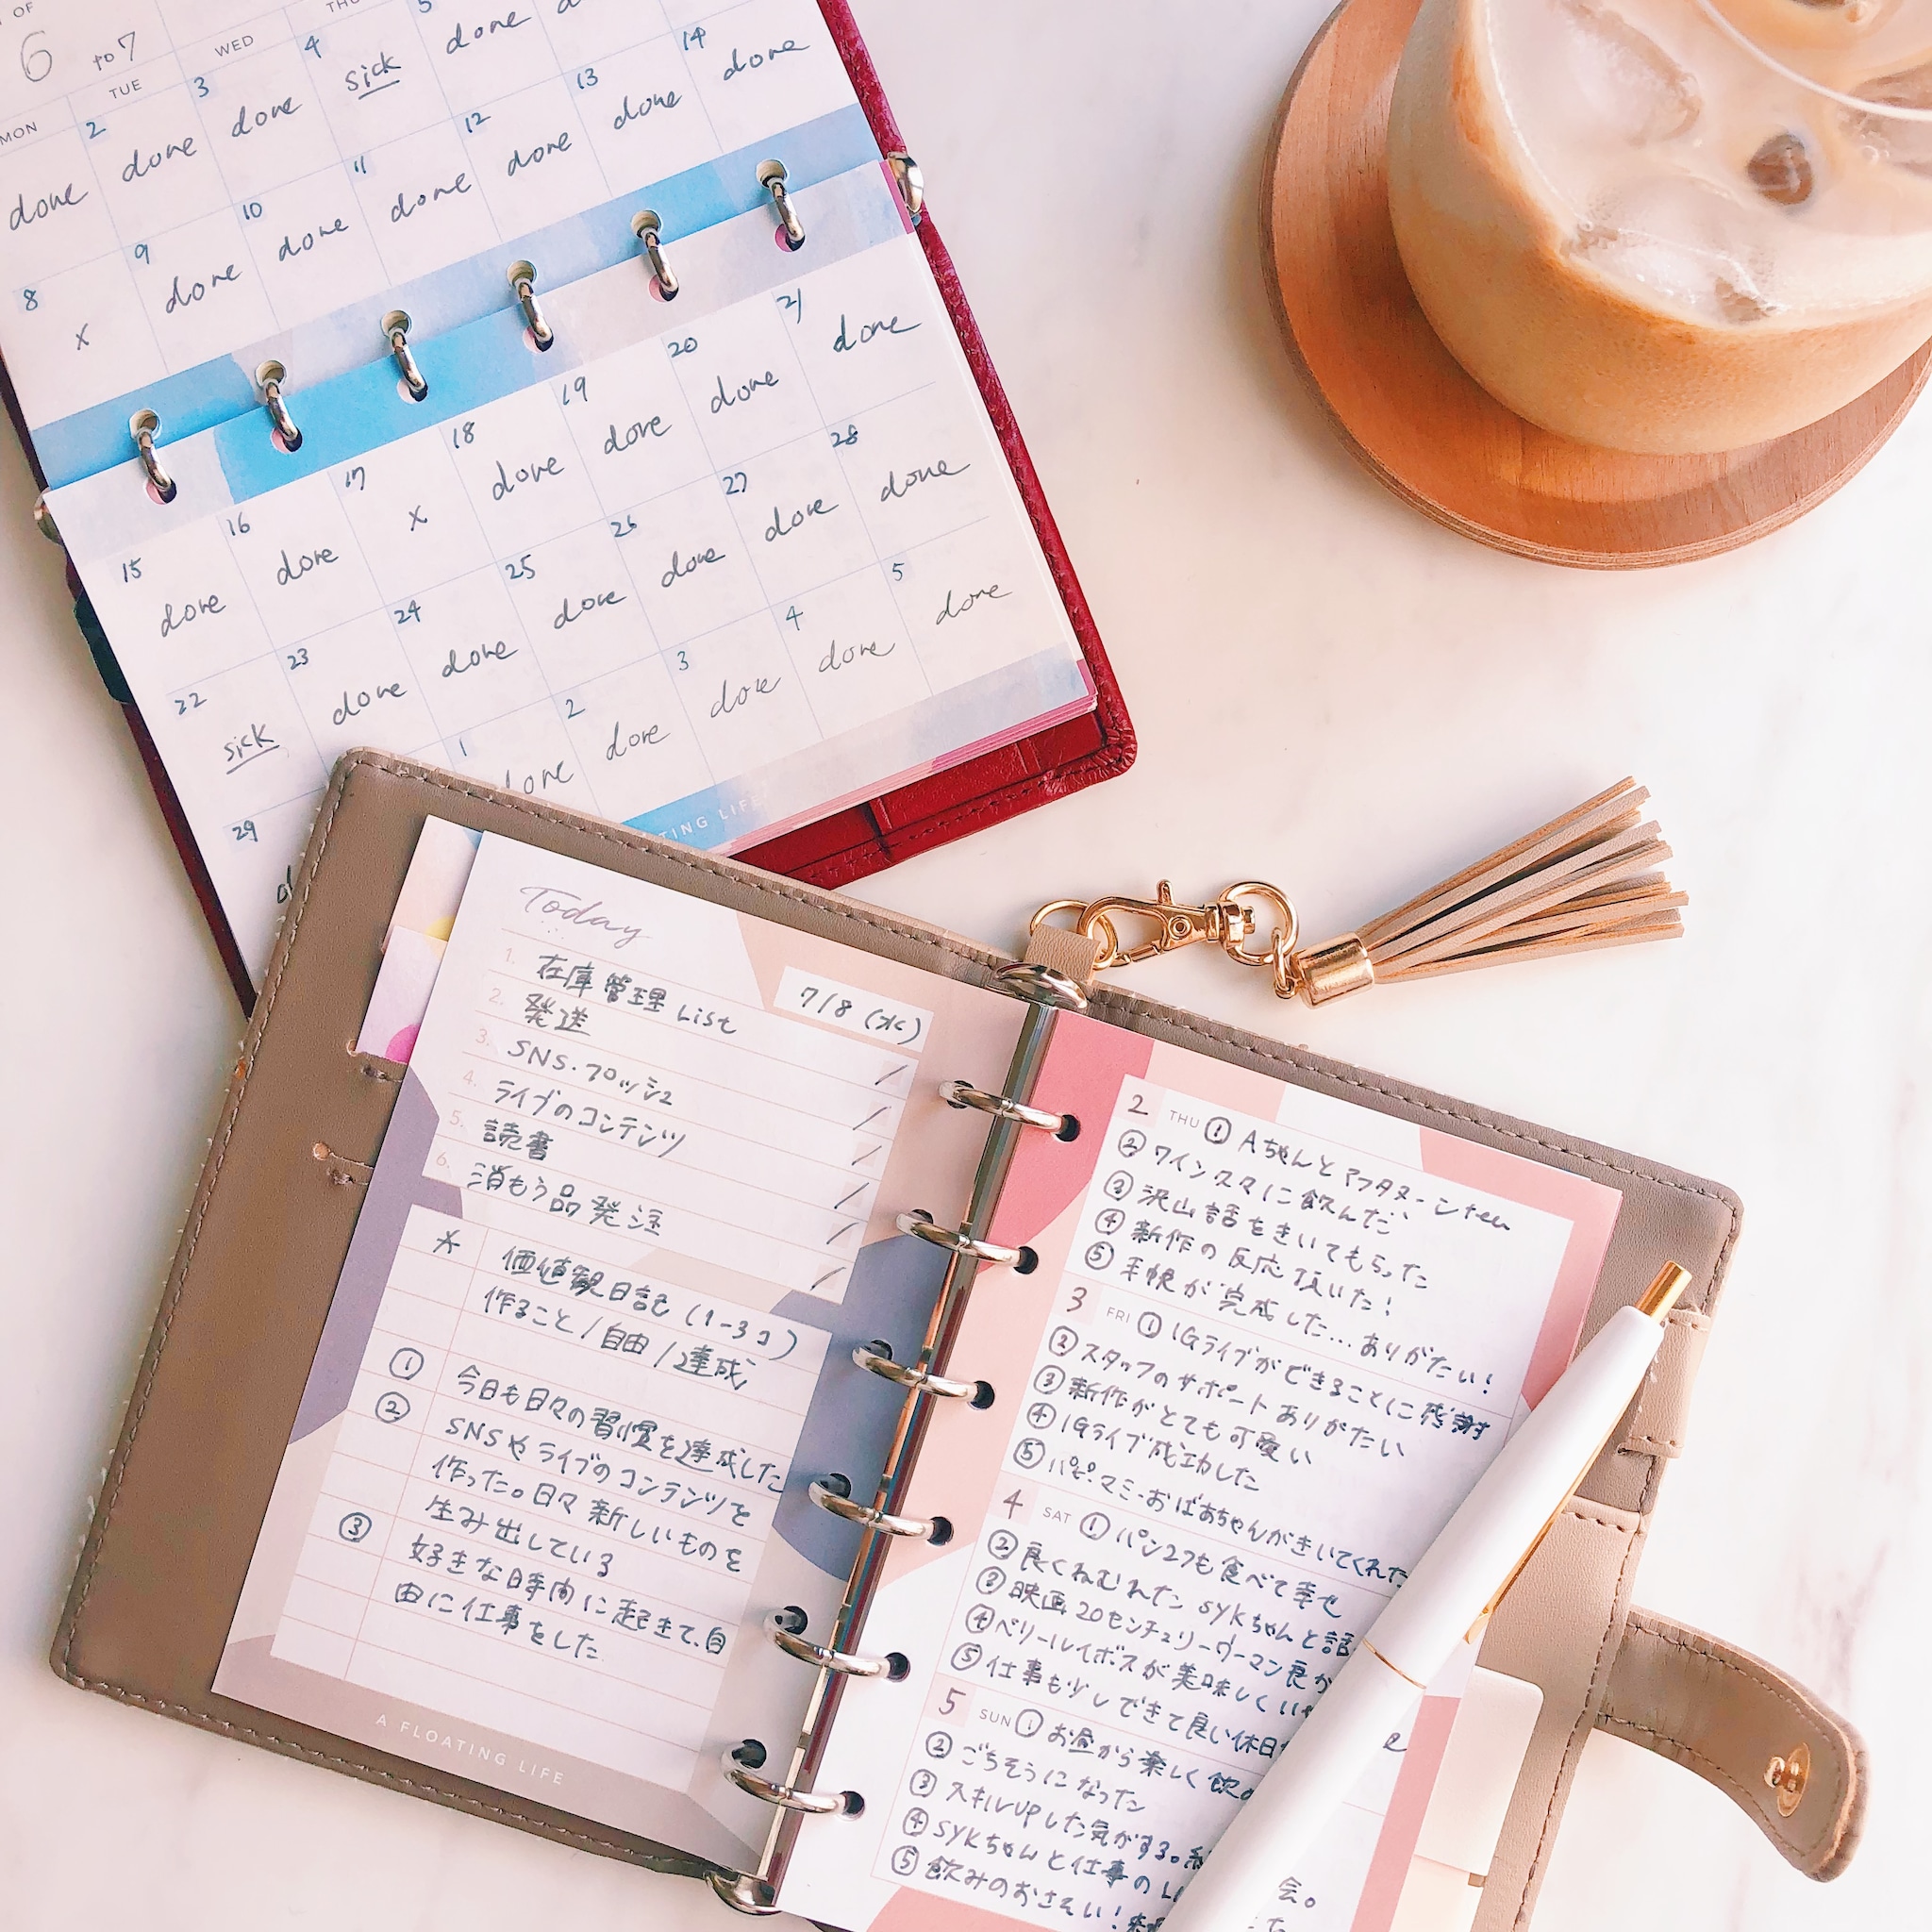 OF
6 to 7
MON
TUE
WED
done
2 done
3 done
4 sick
5 done
8 x
9 done
10 done
11 done
12 done
13 done
14 done
15 done
16 done
17 x
18 done
19 done
20 done
21 done
22 sick
23 done
24 done
25 done
26 done
27 done
28 done
29
1 done
2 done
3 done
4 done
5 done
TING LIFE
Today
7/8 (水)
1. 在庫管理 List
2. 発送
3. SNS・プロッシュ
4. ライブのコンテンツ
5. 読書
6. 消もう品発注
* 価値観日記 (1-3コ)
作ること/自由/達成
① 今日も日々の習慣を達成した
② SNSやライブのコンテンツを
作った。日々新しいものを
生み出している
③ 好きな時間に起きて、自
由に仕事をした
A FLOATING LIFE
2 THU ① Aちゃんとアフタヌーンtea
② ワインスマに飲んだ
③ 沢山話をきいてもらった
④ 新作の反応頂いた!
⑤ 手帳が完成した...ありがたい!
3 FRI ① IGライブができることに感謝
② スタッフのサポートありがたい
③ 新作がとても可愛い
④ IGライブ成功した
⑤ パピ・マミ・おばあちゃんがきいてくれた
4 SAT ① パン2つも食べて幸せ
② 良くねむれた syKちゃんと話
③ 映画20センチュリーウーマン良か
④ ベリールイボスが美味しくい
⑤ 仕事も少しできて良い休日
5 SUN ① お昼から楽しく飲
② ごちそうになった
③ スキルUPした気がする。
④ SYKちゃんと仕事の
⑤ 飲みのおさそい!
e
会。